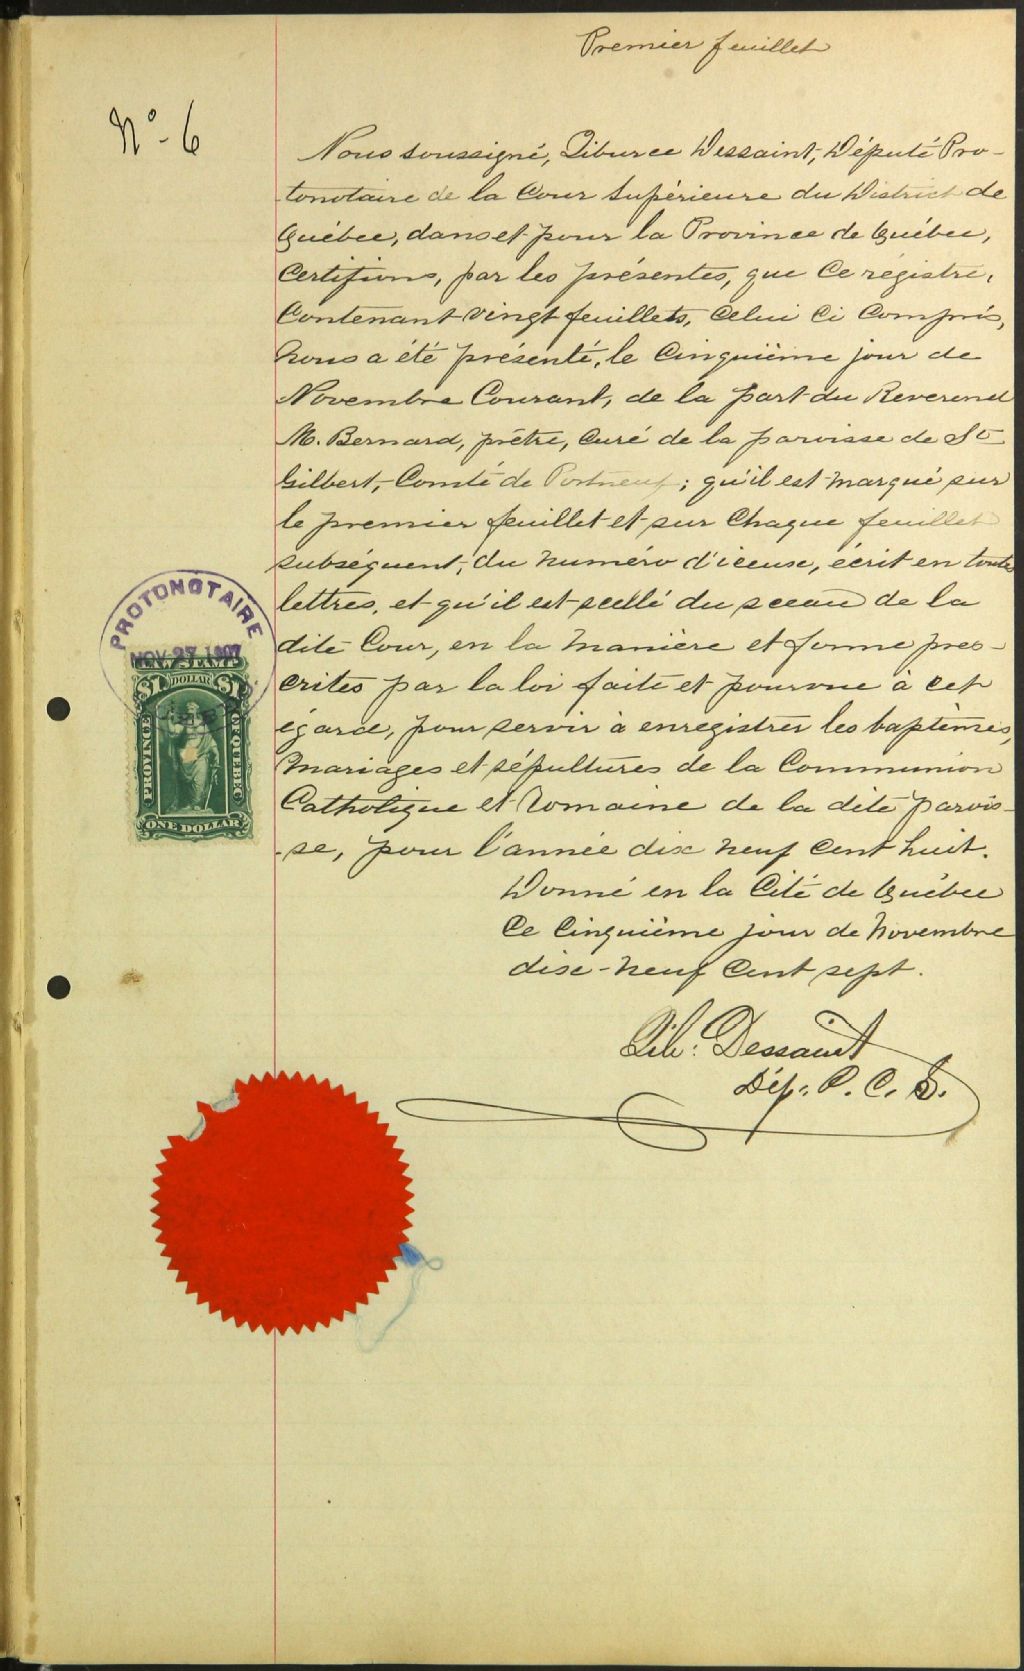 Premier feuillet
No - 6
Nous soussigné, Tiburce Dessaint, Député Pro-
tonotaire de la Cour Supérieure du District de
Québec, dans et pour la Province de Québec,
Certifions, par les présentes, que Ce régistre,
Contenant vingt feuillets, Celui Ci Compris,
nous a été présenté, le Cinquième jour de
Novembre Courant, de la part du Reverend
M. Bernard, prêtre, Curé de la paroisse de St
Gilbert, Comté de Portneuf; qu'il est marqué sur
le premier feuillet et sur Chaque feuillet
subséquent, du numéro d'iceux, écrit en toutes
lettres, et qu'il est scellé du sceau de la
dite Cour, en la manière et forme pres-
crites par la loi faite et pourvue à cet
égard, pour servir à enregistrer les baptêmes,
Mariages et sépultures de la Communion
Catholique et Romaine de la dite parois-
-se, pour l'année dix neuf Cent huit.
Donné en la Cité de Québec
Ce Cinquième jour de Novembre
dix-neuf Cent sept.
Tib. Dessaint
Dép. P. C. S.
PROTONOTAIRE
NOV 27 1907
LAW STAMP
$1 DOLLAR $1
PROVINCE OF QUEBEC
ONE DOLLAR